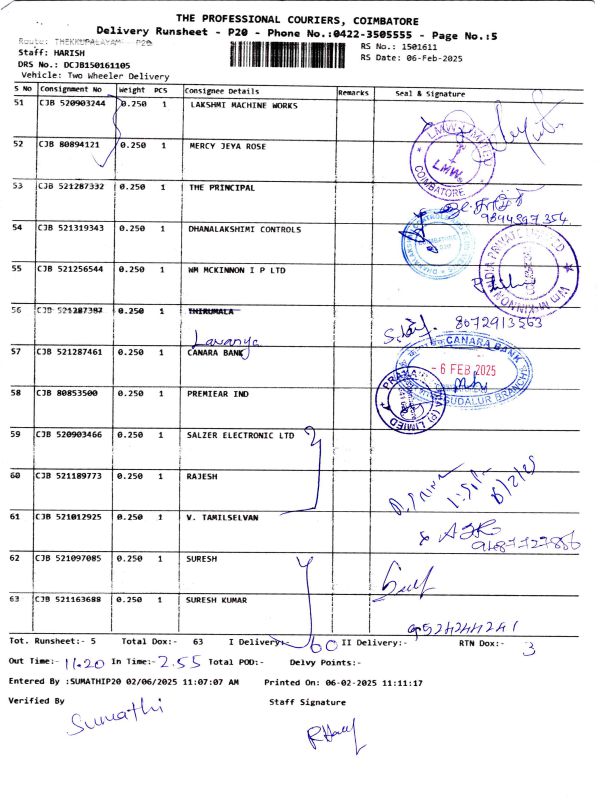 THE PROFESSIONAL COURIERS, COIMBATORE
Delivery Runsheet - P20 - Phone No.:0422-3505555 - Page No.:5
Route: THEKKUPALAYAM- P20
RS No.: 1501611
Staff: HARISH
RS Date: 06-Feb-2025
DRS No.: DCJB150161105
Vehicle: Two Wheeler Delivery
S No Consignment No Weight PCS Consignee Details Remarks Seal & Signature
51 CJB 520903244 0.250 1 LAKSHMI MACHINE WORKS
52 CJB 80894121 0.250 1 MERCY JEYA ROSE
LMW
COIMBATORE
53 CJB 521287332 0.250 1 THE PRINCIPAL
9894897354
54 CJB 521319343 0.250 1 DHANALAKSHIMI CONTROLS
55 CJB 521256544 0.250 1 WM MCKINNON I P LTD
56 CJB 521287387 0.250 1 THIRUMALA
Lavanya
8072913563
57 CJB 521287461 0.250 1 CANARA BANK
CANARA BANK
- 6 FEB 2025
SUDALUR BRANCH
58 CJB 80853500 0.250 1 PREMIEAR IND
59 CJB 520903466 0.250 1 SALZER ELECTRONIC LTD
60 CJB 521189773 0.250 1 RAJESH
6/2/25
61 CJB 521012925 0.250 1 V. TAMILSELVAN
62 CJB 521097085 0.250 1 SURESH
63 CJB 521163688 0.250 1 SURESH KUMAR
9524244241
Tot. Runsheet:- 5 Total Dox:- 63 I Delivery:- 60 II Delivery:- RTN Dox:- 3
Out Time:- 11.20 In Time:- 2.55 Total POD:- Delvy Points:-
Entered By :SUMATHIP20 02/06/2025 11:07:07 AM Printed On: 06-02-2025 11:11:17
Verified By Staff Signature
Sumathi